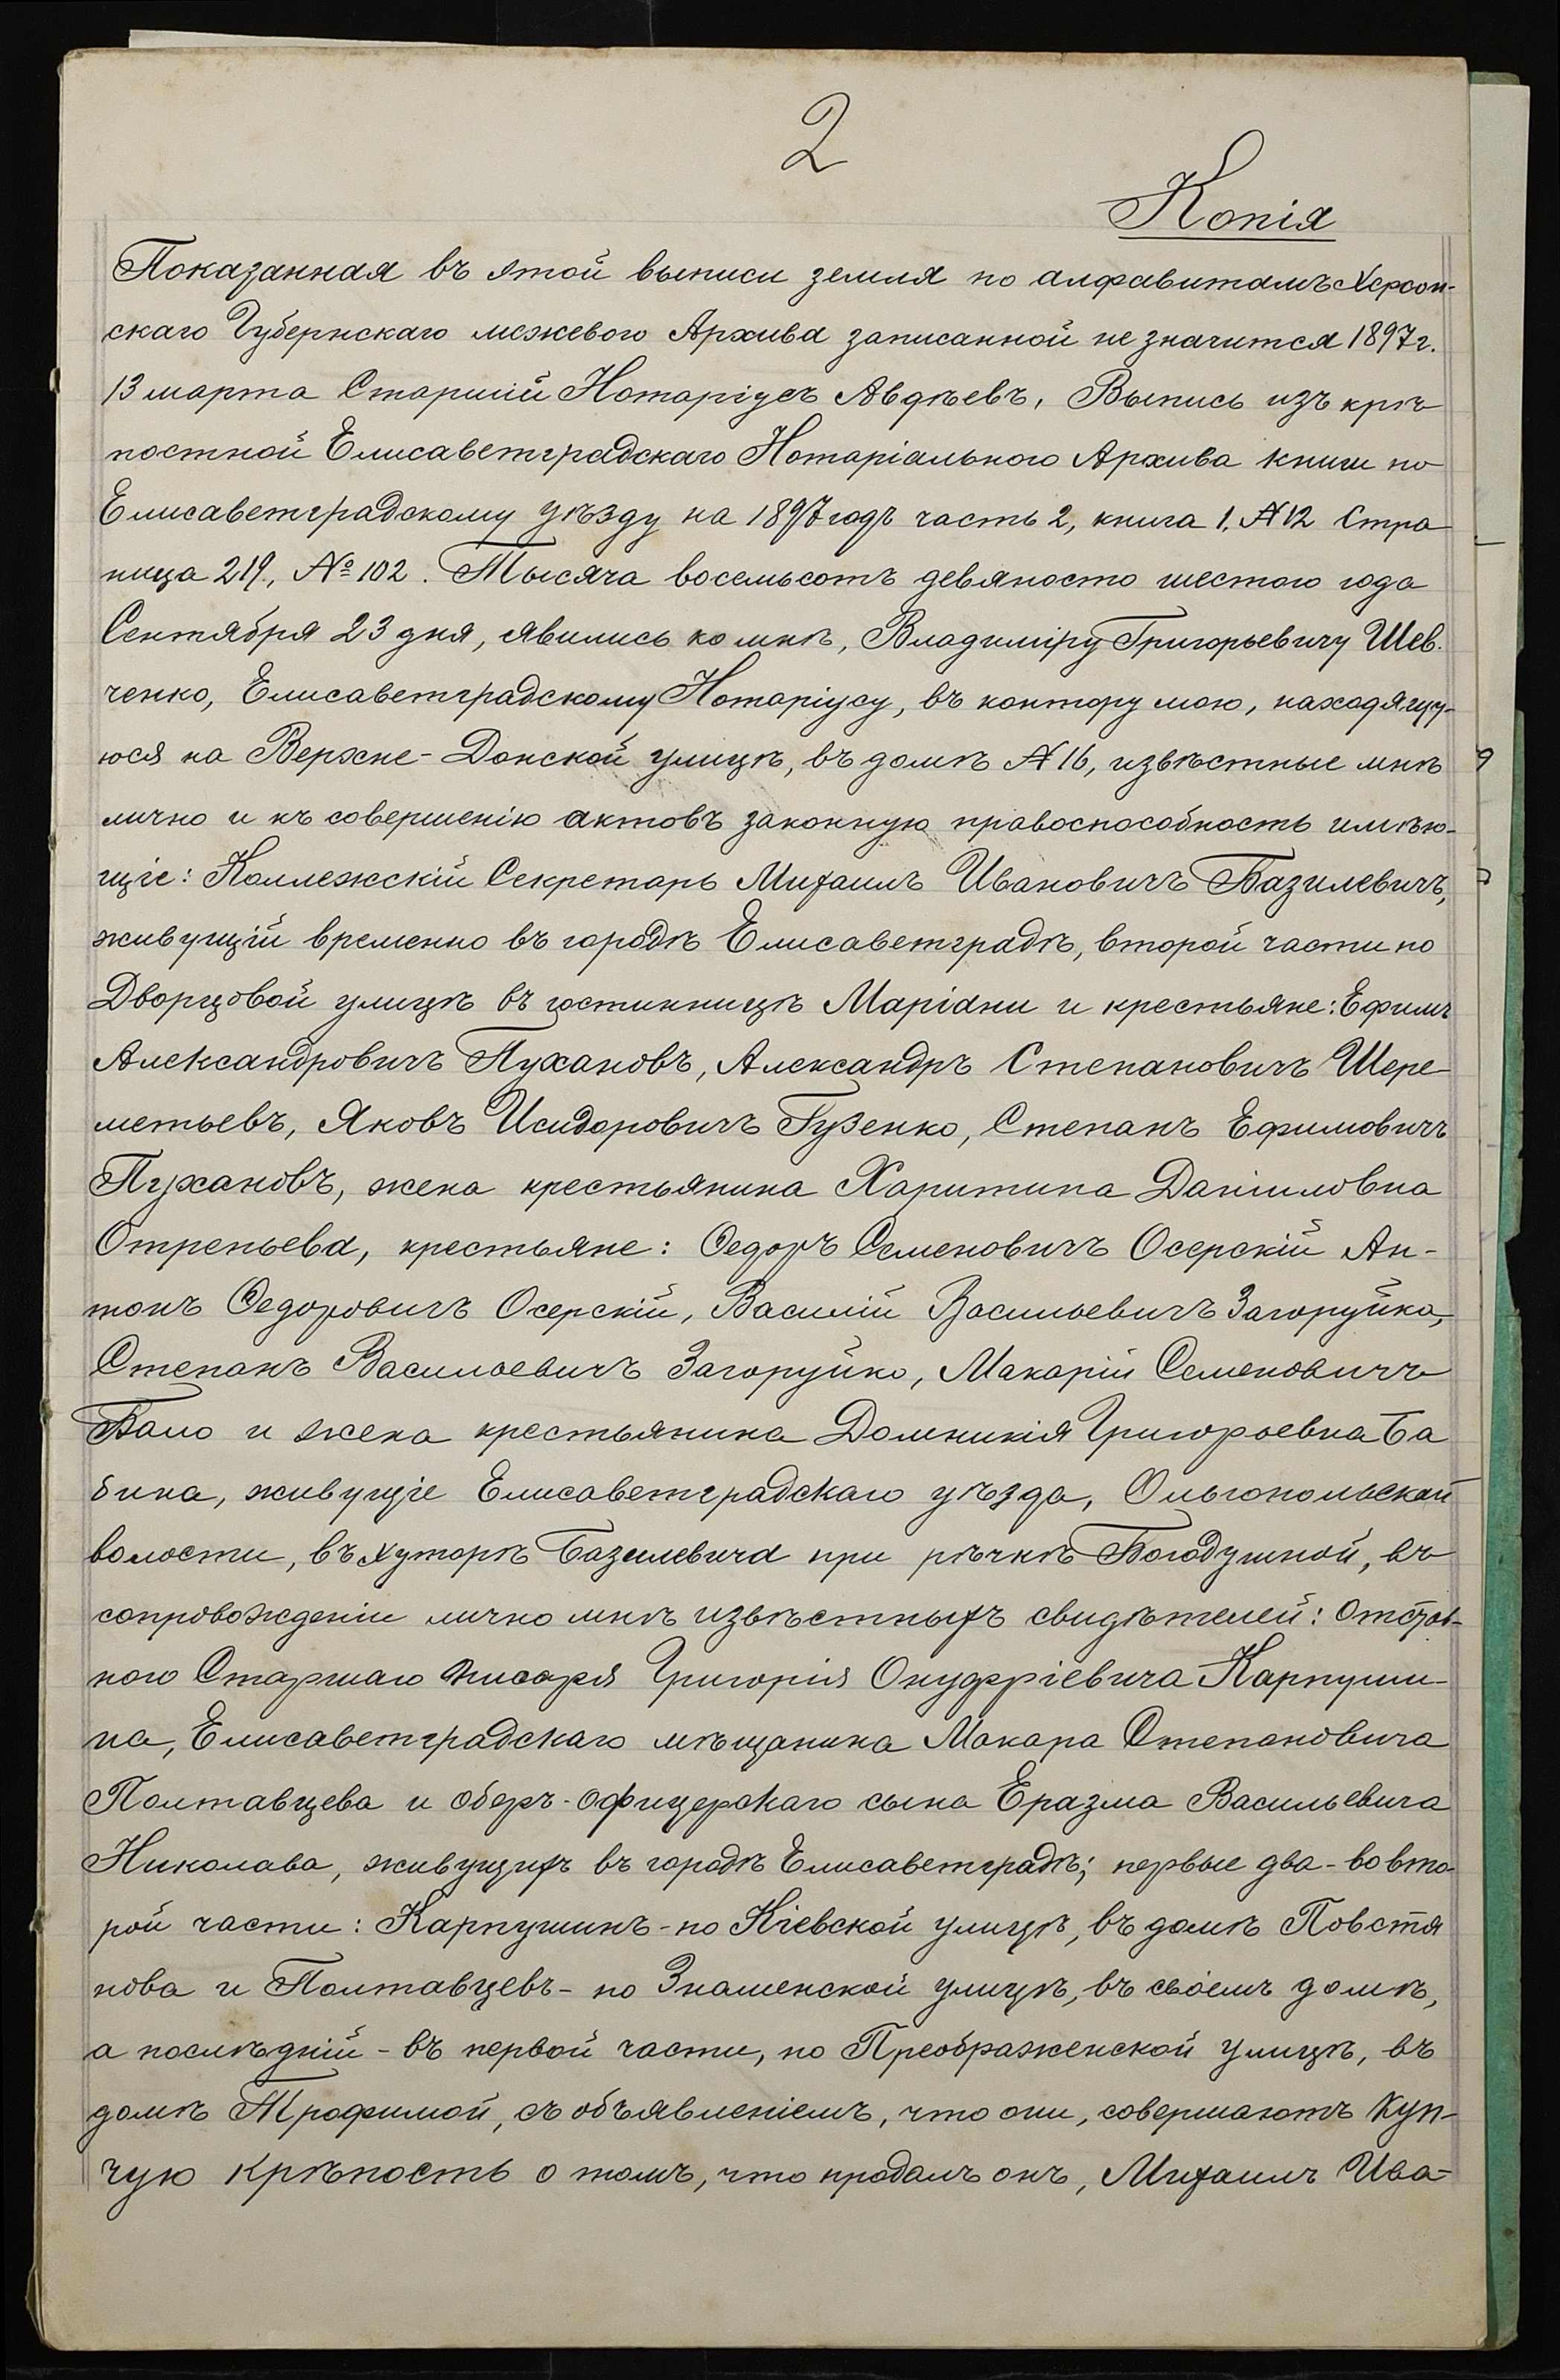 2
Копія
Показанная въ этой выписи земля по алфавитамъ Херсон-
скаго Губернскаго межевого Архива записанной не значится 1897 г.
13 марта Старшій Нотаріусъ Авдѣевъ, Выпись изъ крѣ
постной Елисаветградскаго Нотаріального Архива книги по
Елисаветградскому уѣзду на 1897 годъ часть 2, книга 1. № 12 Стра
ница 219, № 102. Тысяча восемьсотъ девяносто шестого года
Сентября 23 дня, явились ко мнѣ, Владиміру Григорьевичу Шев.
ченко, Елисаветградскому Нотаріусу, въ контору мою, находящу-
юся на Верхне-Донской улицѣ, въ домѣ № 16, извѣстные мнѣ
лично и къ совершенію актовъ законную правоспособность имѣю-
щіе: Коллежскій Секретарь Михаилъ Ивановичъ Базилевичъ,
живущій временно въ городѣ Елисаветградѣ, второй части по
Дворцовой улицѣ въ гостинницѣ Маріани и крестьяне: Ефимъ
Александровичъ Пухановъ, Александръ Степановичъ Шере-
метьевъ, Яковъ Исидоровичъ Гузенко, Степанъ Ефимовичъ
Пухановъ, жена крестьянина Харитина Даниловна
Отрепьева, крестьяне: Ѳедоръ Семеновичъ Осерскій Ан-
тонъ Ѳедоровичъ Осерскій, Василій Васильевичъ Загоруйко,
Степанъ Васильевичъ Загоруйко, Макарій Семеновичъ
Бало и жена крестьянина Домникія Григорьевна Ба
бина, живущіе Елисаветградскаго уѣзда, Ольгопольской
волости, въ хуторѣ Базилевича при рѣчкѣ Богодушной, въ
сопровожденіи лично мнѣ извѣстныхъ свидѣтелей: отстав-
ного Старшаго писаря Григорія Онуфріевича Карпуши-
на, Елисаветградскаго мѣщанина Макара Степановича
Полтавцева и оберъ-офицерскаго сына Еразма Васильевича
Николава, живущихъ въ городѣ Елисаветградѣ; первые два - во вто-
рой части: Карпушинъ - по Кіевской улицѣ, въ домѣ Повстя
нова и Полтавцевъ - по Знаменской улицѣ, въ своемъ домѣ,
а послѣдній - въ первой части, по Преображенской улицѣ, въ
домѣ Трофимой, съ объявленіемъ, что они, совершаютъ куп-
чую крѣпость о томъ, что продалъ онъ, Михаилъ Ива-